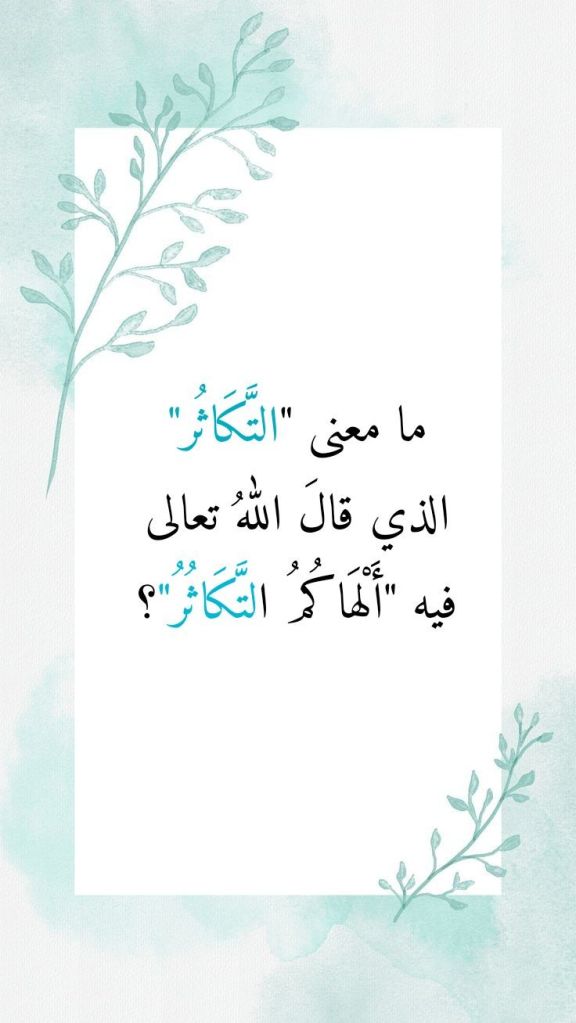 ما معنى "التَّكَاثُر"
الذي قالَ اللهُ تعالى
فيه "أَلْهَاكُمُ التَّكَاثُرُ"؟